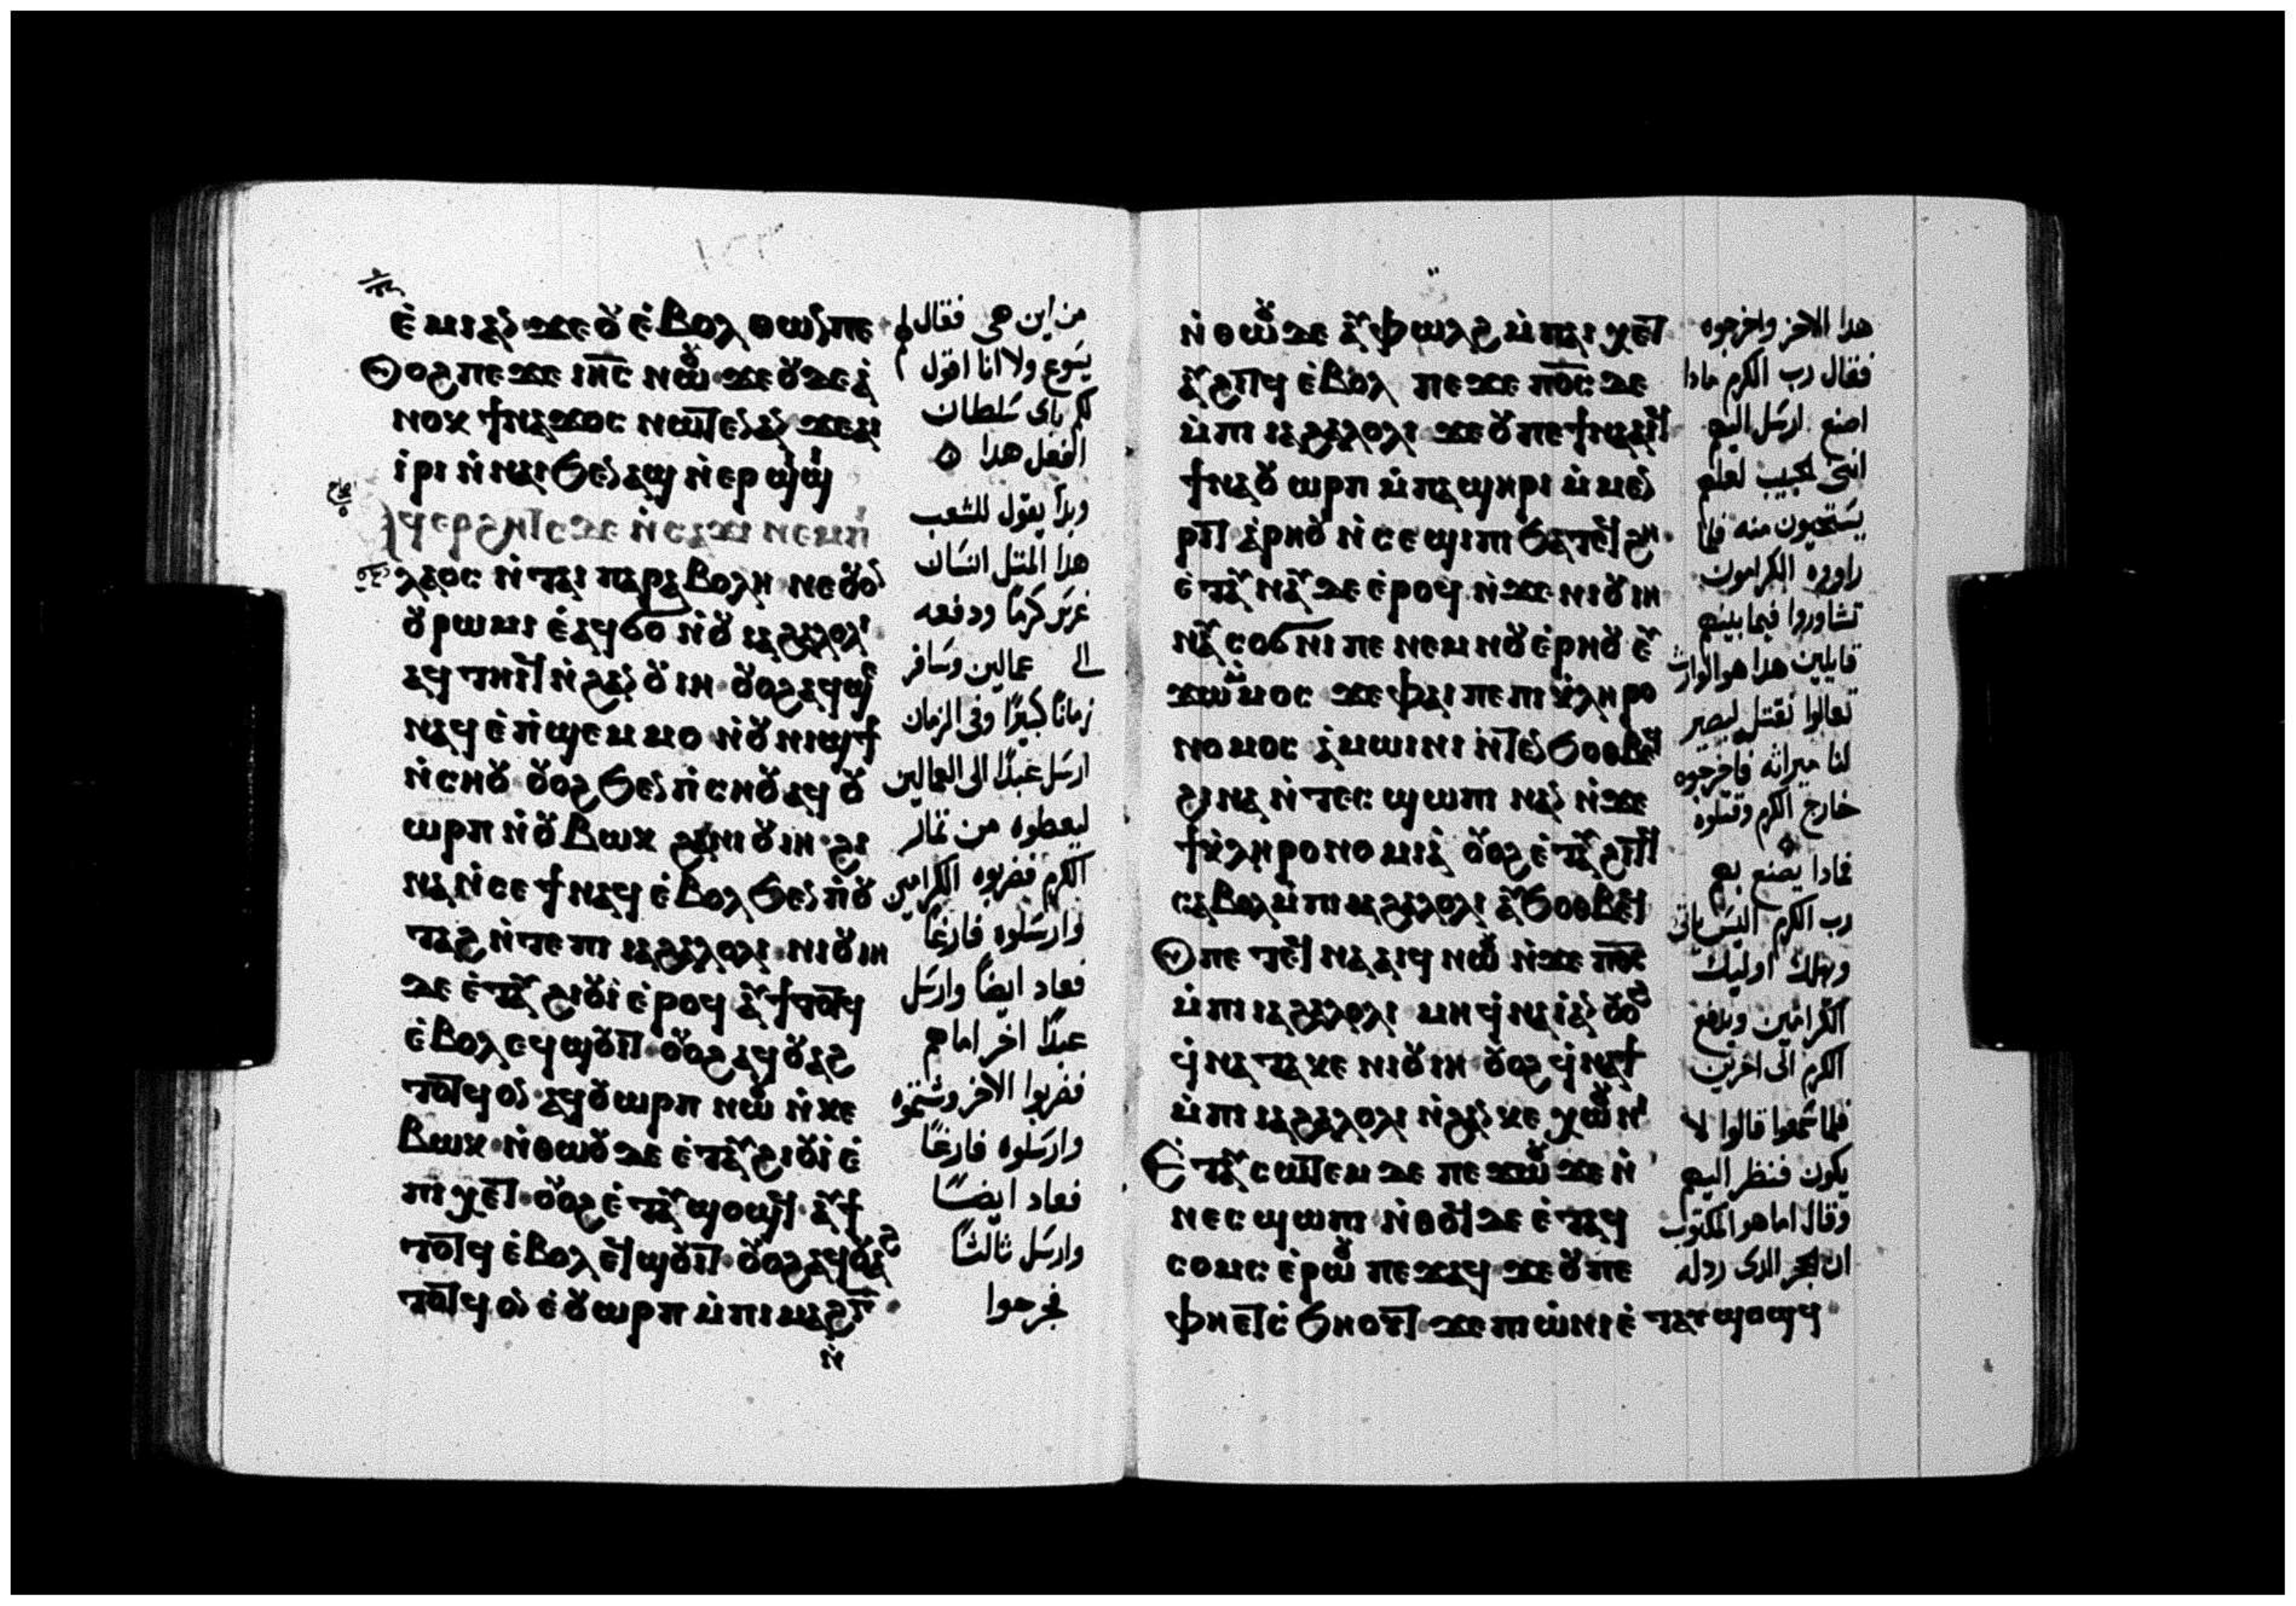 ⲉ̇ⲙⲓ ⲁⲛ ϫⲉ ⲟⲩ ⲉ̇ⲃⲟⲗ ⲑⲱⲛ ⲡⲉ
ⲟⲩⲟϩ ⲡⲉϫⲉ ⲓⲏ̅ⲥ̅ ⲛⲱⲟⲩ ϫⲉ ⲟⲩⲇⲉ ⲁ̇
ⲛⲟⲕ ϯⲛⲁϫⲟⲥ ⲛⲱⲧⲉⲛ ⲁⲛ ϫⲉ ⲁⲓ
ⲓ̇ⲣⲓ ⲛ̇ⲛⲁⲓ ϧⲉⲛ ⲁϣ ⲛ̇ⲉⲣϣⲓϣⲓ
ⲁϥⲉⲣϩⲏⲧⲥ ⲇⲉ ⲛ̇ⲥⲁϫⲓ ⲛⲉⲙ ⲡⲓ
ⲗⲁⲟⲥ ⲛ̇ⲧⲁⲓ ⲡⲁⲣⲁⲃⲟⲗⲏ ⲛⲉ ⲟⲩⲟⲛ
ⲟⲩⲣⲱⲙⲓ ⲉ̇ⲁϥϭⲟ ⲛ̇ⲟⲩ ⲓⲁϩⲁⲗⲟⲗⲓ
ⲁϥⲧⲏⲓϥ ⲛ̇ϩⲁⲛ ⲟⲩⲓⲏ ⲟⲩⲟϩ ⲁϥϣⲉ
ⲛⲁϥ ⲉ̇ⲡ̇ϣⲉⲙⲙⲟ ⲛ̇ⲟⲩⲛⲓϣϯ
ⲛ̇ⲥⲏⲟⲩ ⲟⲩⲟϩ ϧⲉⲛ ⲡ̇ⲥⲏⲟⲩ ⲁϥⲟⲩ
ⲱⲣⲡ ⲛ̇ⲟⲩⲃⲱⲕ ϩⲁ ⲛⲓⲟⲩⲓⲏ ϩⲓ
ⲛⲁ ⲛ̇ⲥⲉϯ ⲛⲁϥ ⲉ̇ⲃⲟⲗ ϧⲉⲛ ⲡ̇ⲟⲩ
ⲧⲁϩ ⲛ̇ⲧⲉ ⲡⲓ ⲓⲁϩⲁⲗⲟⲗⲓ ⲛⲓⲟⲩⲓⲏ
ⲇⲉ ⲉ̇ⲧⲁⲩϩⲓⲟⲩⲓ̇ ⲉ̇ⲣⲟϥ ⲁⲩϯⲧⲟⲧϥ
ⲉ̇ⲃⲟⲗ ⲉϥϣⲟⲩⲓⲧ ⲟⲩⲟϩ ⲁϥⲟⲩⲁϩ
ⲧⲟⲧϥ ⲟⲛ ⲁϥⲟⲩⲱⲣⲡ ⲛⲱⲟⲩ ⲛ̇ⲕⲉ
ⲃⲱⲕ ⲛ̇ⲑⲱⲟⲩ ⲇⲉ ⲉ̇ⲧⲁⲩϩⲓⲟⲩⲓ̇ ⲉ̇
ⲡⲓⲭⲉⲧ ⲟⲩⲟϩ ⲉ̇ⲧⲁⲩϣⲟϣϥ ⲁⲩϯ
ⲧⲟⲧϥ ⲉ̇ⲃⲟⲗ ⲉϥϣⲟⲩⲓⲧ ⲟⲩⲟϩ ⲁϥⲟⲩⲁϩ
ⲧⲟⲧϥ ⲟⲛ ⲉ̇ⲟⲩⲱⲣⲡ ⲙ̇ⲡⲓⲙⲁϩⲅ̅
ⲛ̇
من اين هى فقال
يسوع ولا انا اقول
لكم باى سلطان
افعل هذا
وبدا يقول للشعب
هذا المثل انسان
غرس كرما ودفعه
الى عمالين وسافر
زمانا كبيرا وفى الزمان
ارسل عبدا الى العمالين
ليعطوه من ثمار
الكرم فضربوه الكرامين
وارسلوه فارغا
فعاد ايضا وارسل
عبدا اخر اماهم
فضربوا الاخر وشتموه
وارسلوه فارغا
فعاد ايضا
وارسل ثالثا
فجرحوا
ⲛ̇ⲑⲱⲟⲩ ⲇⲉ ⲁⲩⲫⲱⲗϩ ⲙ̇ⲡⲁⲓ ⲭⲉⲧ
ⲁⲩϩⲓⲧϥ ⲉ̇ⲃⲟⲗ ⲡⲉϫⲉ ⲡⲟ̅ⲥ̅ ⲇⲉ
ⲙ̇ⲡⲓ ⲓⲁϩⲁⲗⲟⲗⲓ ϫⲉ ⲟⲩ ⲡⲉϯⲛⲁⲁⲓϥ
ϯⲛⲁⲟⲩⲱⲣⲡ ⲙ̇ⲡⲁϣⲏⲣⲓ ⲙ̇ⲙⲉⲛ
ⲣⲓⲧ ⲁ̇ⲣⲏⲟⲩ ⲛ̇ⲥⲉϣⲓⲡⲓ ϧⲁⲧⲉϥϩⲏ
ⲉ̇ⲧⲁⲩⲛⲁⲩ ⲇⲉ ⲉ̇ⲣⲟϥ ⲛ̇ϫⲉ ⲛⲓⲟⲩⲓⲏ
ⲛⲁⲩⲥⲟϭⲛⲓ ⲡⲉ ⲛⲉⲙ ⲛⲟⲩⲉ̇ⲣⲏⲟⲩ ⲉⲩ
ϫⲱ ⲙ̇ⲙⲟⲥ ϫⲉ ⲫⲁⲓ ⲡⲉ ⲡⲓⲕ̇ⲗⲏⲣⲟ
ⲛⲟⲙⲟⲥ ⲁ̇ⲙⲱⲓⲛⲓ ⲛ̇ⲧⲉⲛϧⲟⲑⲃⲉϥ
ϩⲓⲛⲁ ⲛ̇ⲧⲉⲥϣⲱⲡⲓ ⲛⲁⲛ ⲛ̇ϫⲉ
ϯⲕ̇ⲗⲏⲣⲟⲛⲟⲙⲓⲁ̇ ⲟⲩⲟϩ ⲉ̇ⲧⲁⲩϩⲓⲧϥ
ⲥⲁⲃⲟⲗ ⲙ̇ⲡⲓ ⲓⲁϩⲁⲗⲟⲗⲓ ⲁⲩϧⲟⲑⲃⲉϥ
ⲟⲩ ⲡⲉⲧⲉϥⲛⲁⲁⲓϥ ⲛⲱⲟⲩ ⲛ̇ϫⲉ ⲡⲟ̅ⲥ̅
ⲙ̇ⲡⲓ ⲓⲁϩⲁⲗⲟⲗⲓ ⲙⲏ ϥ̇ⲛⲁⲓ̇ ⲁⲛ ⲟⲩⲟϩ
ϥ̇ⲛⲁⲧⲁⲕⲉ ⲛⲓⲟⲩⲓⲏ ⲟⲩⲟϩ ϥ̇ⲛⲁϯ
ⲙ̇ⲡⲓ ⲓⲁϩⲁⲗⲟⲗⲓ ⲛ̇ϩⲁⲛⲕⲉⲭⲱⲟⲩⲛⲓ
ⲉ̇ⲧⲁⲩⲥⲱⲧⲉⲙ ⲇⲉ ⲡⲉϫⲱⲟⲩ ϫⲉ ⲛ̇
ⲛⲉⲥϣⲱⲡⲓ ⲛ̇ⲑⲟϥ ⲇⲉ ⲉ̇ⲧⲁϥ
ⲥⲟⲙⲥ ⲉ̇ⲣⲱⲟⲩ ⲡⲉϫⲁϥ ϫⲉ ⲟⲩ ⲡⲉ
ⲫⲏⲉⲧⲥ̇ϧⲏⲟⲩⲧ ϫⲉ ⲡⲓⲱ̇ⲛⲓ ⲉ̇ⲧⲁⲩϣⲟϣϥ
هذا الاخر واخرجوه
فقال رب الكرم ماذا
اصنع ارسل اليهم
ابنى الحبيب لعلهم
يستحيون منه فلما
راوه الكرامون
تشاوروا فيما بينهم
قايلين هذا هو الوارث
تعالوا نقتله ليصير
لنا ميراثه فاخرجوه
خارج الكرم وقتلوه
فماذا يصنع بهم
رب الكرم اليس ياتى
ويهلك اوليك
الكرامين ويدفع
الكرم الى اخرين
فلما سمعوا قالوا لا
يكون فنظر اليهم
وقال اما هو المكتوب
ان الحجر الذى رذله